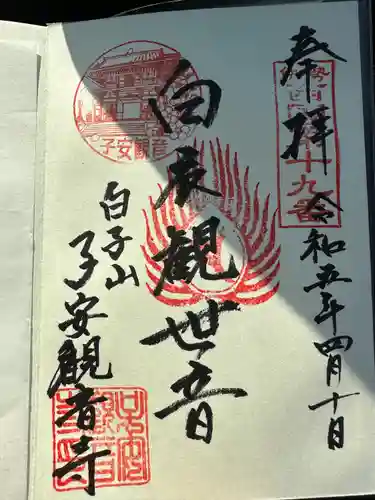 奉拝
令和五年四月十日
白衣観世音
白子山
子安観音寺
子安観音